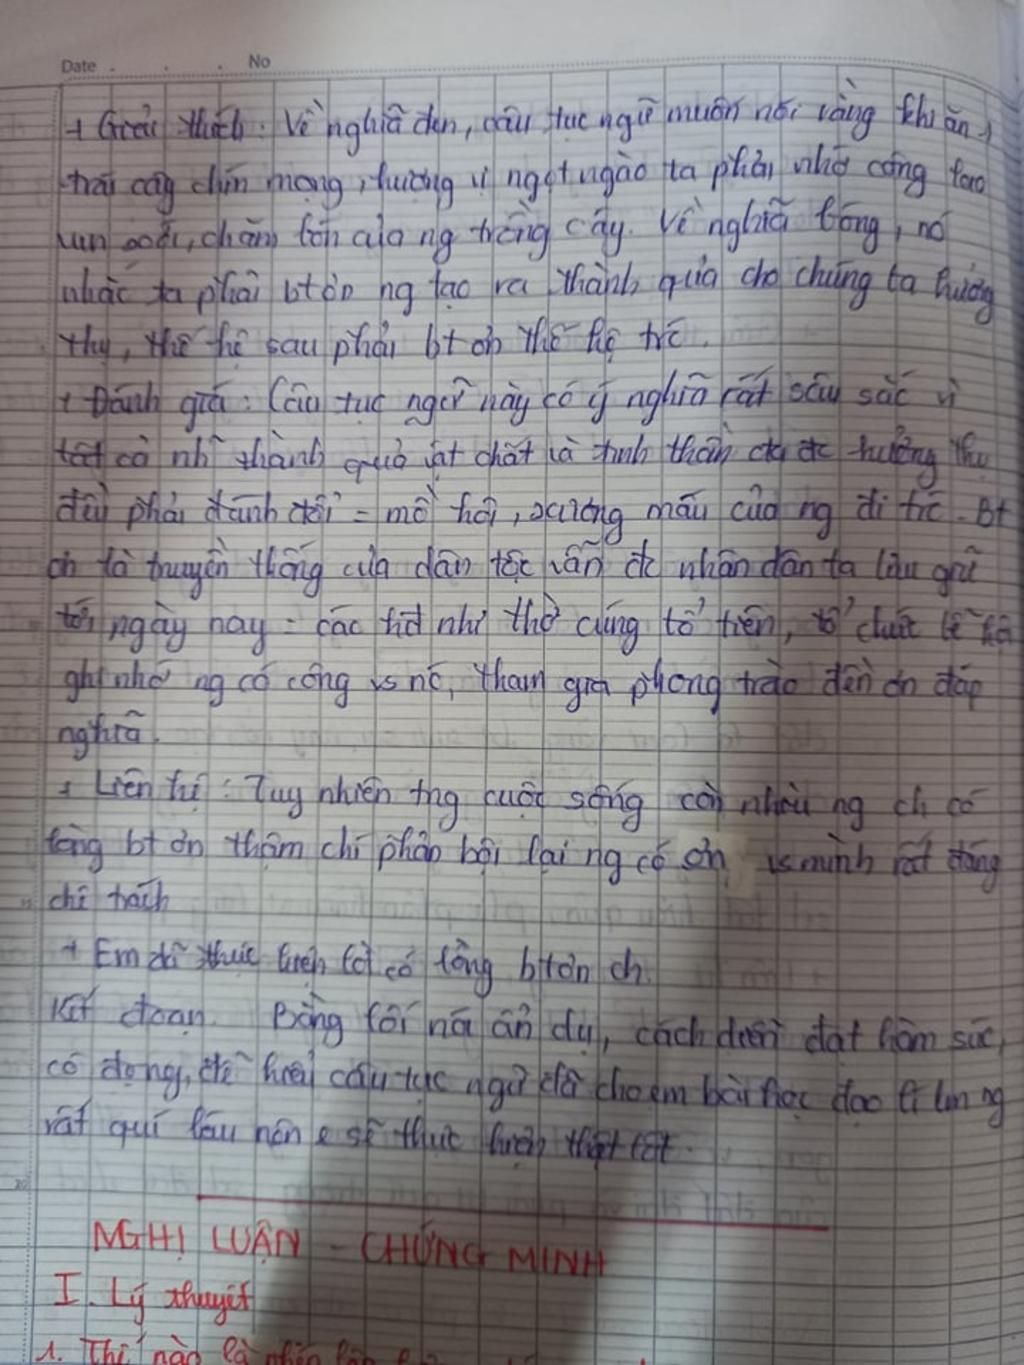 Date . . . No
+ Giải thích : Về nghĩa đen, câu tục ngữ muốn nói rằng khi ăn
trái cây chín mọng, hương vị ngọt ngào ta phải nhớ công lao
vun xới, chăm bón của ng trồng cây. Về nghĩa bóng, nó
nhắc ta phải bt ơn ng tạo ra thành quả cho chúng ta hưởng
thụ, thế hệ sau phải bt ơn thế hệ trc.
+ Đánh giá : Câu tục ngữ này có ý nghĩa rất sâu sắc vì
tất cả nh~ thành quả vật chất và tinh thần đc hưởng thụ
đều phải đánh đổi = mồ hôi, xương máu của ng đi trc. Bt
ơn là truyền thống của dân tộc vẫn đc nhân dân ta lưu giữ
tới ngày nay = các hđ như thờ cúng tổ tiên, tổ chức lễ hội
ghi nhớ ng có công vs nc, tham gia phong trào đền ơn đáp
nghĩa.
+ Liên hệ : Tuy nhiên trg cuộc sống còn nhiều ng ch có
lòng bt ơn thậm chí phản bội lại ng có ơn vs mình rất đáng
chê trách
+ Em đã thực hiện tốt có lòng bt ơn ch
Kết đoạn. Bằng lối nói ẩn dụ, cách diễn đạt hàm súc,
cô đọng, dễ hiểu câu tục ngữ đã cho em bài học đạo lí làm ng
rất quí báu nên e sẽ thực hiện thật tốt.
NGHỊ LUẬN - CHỨNG MINH
I. Lý thuyết
1. Thế nào là